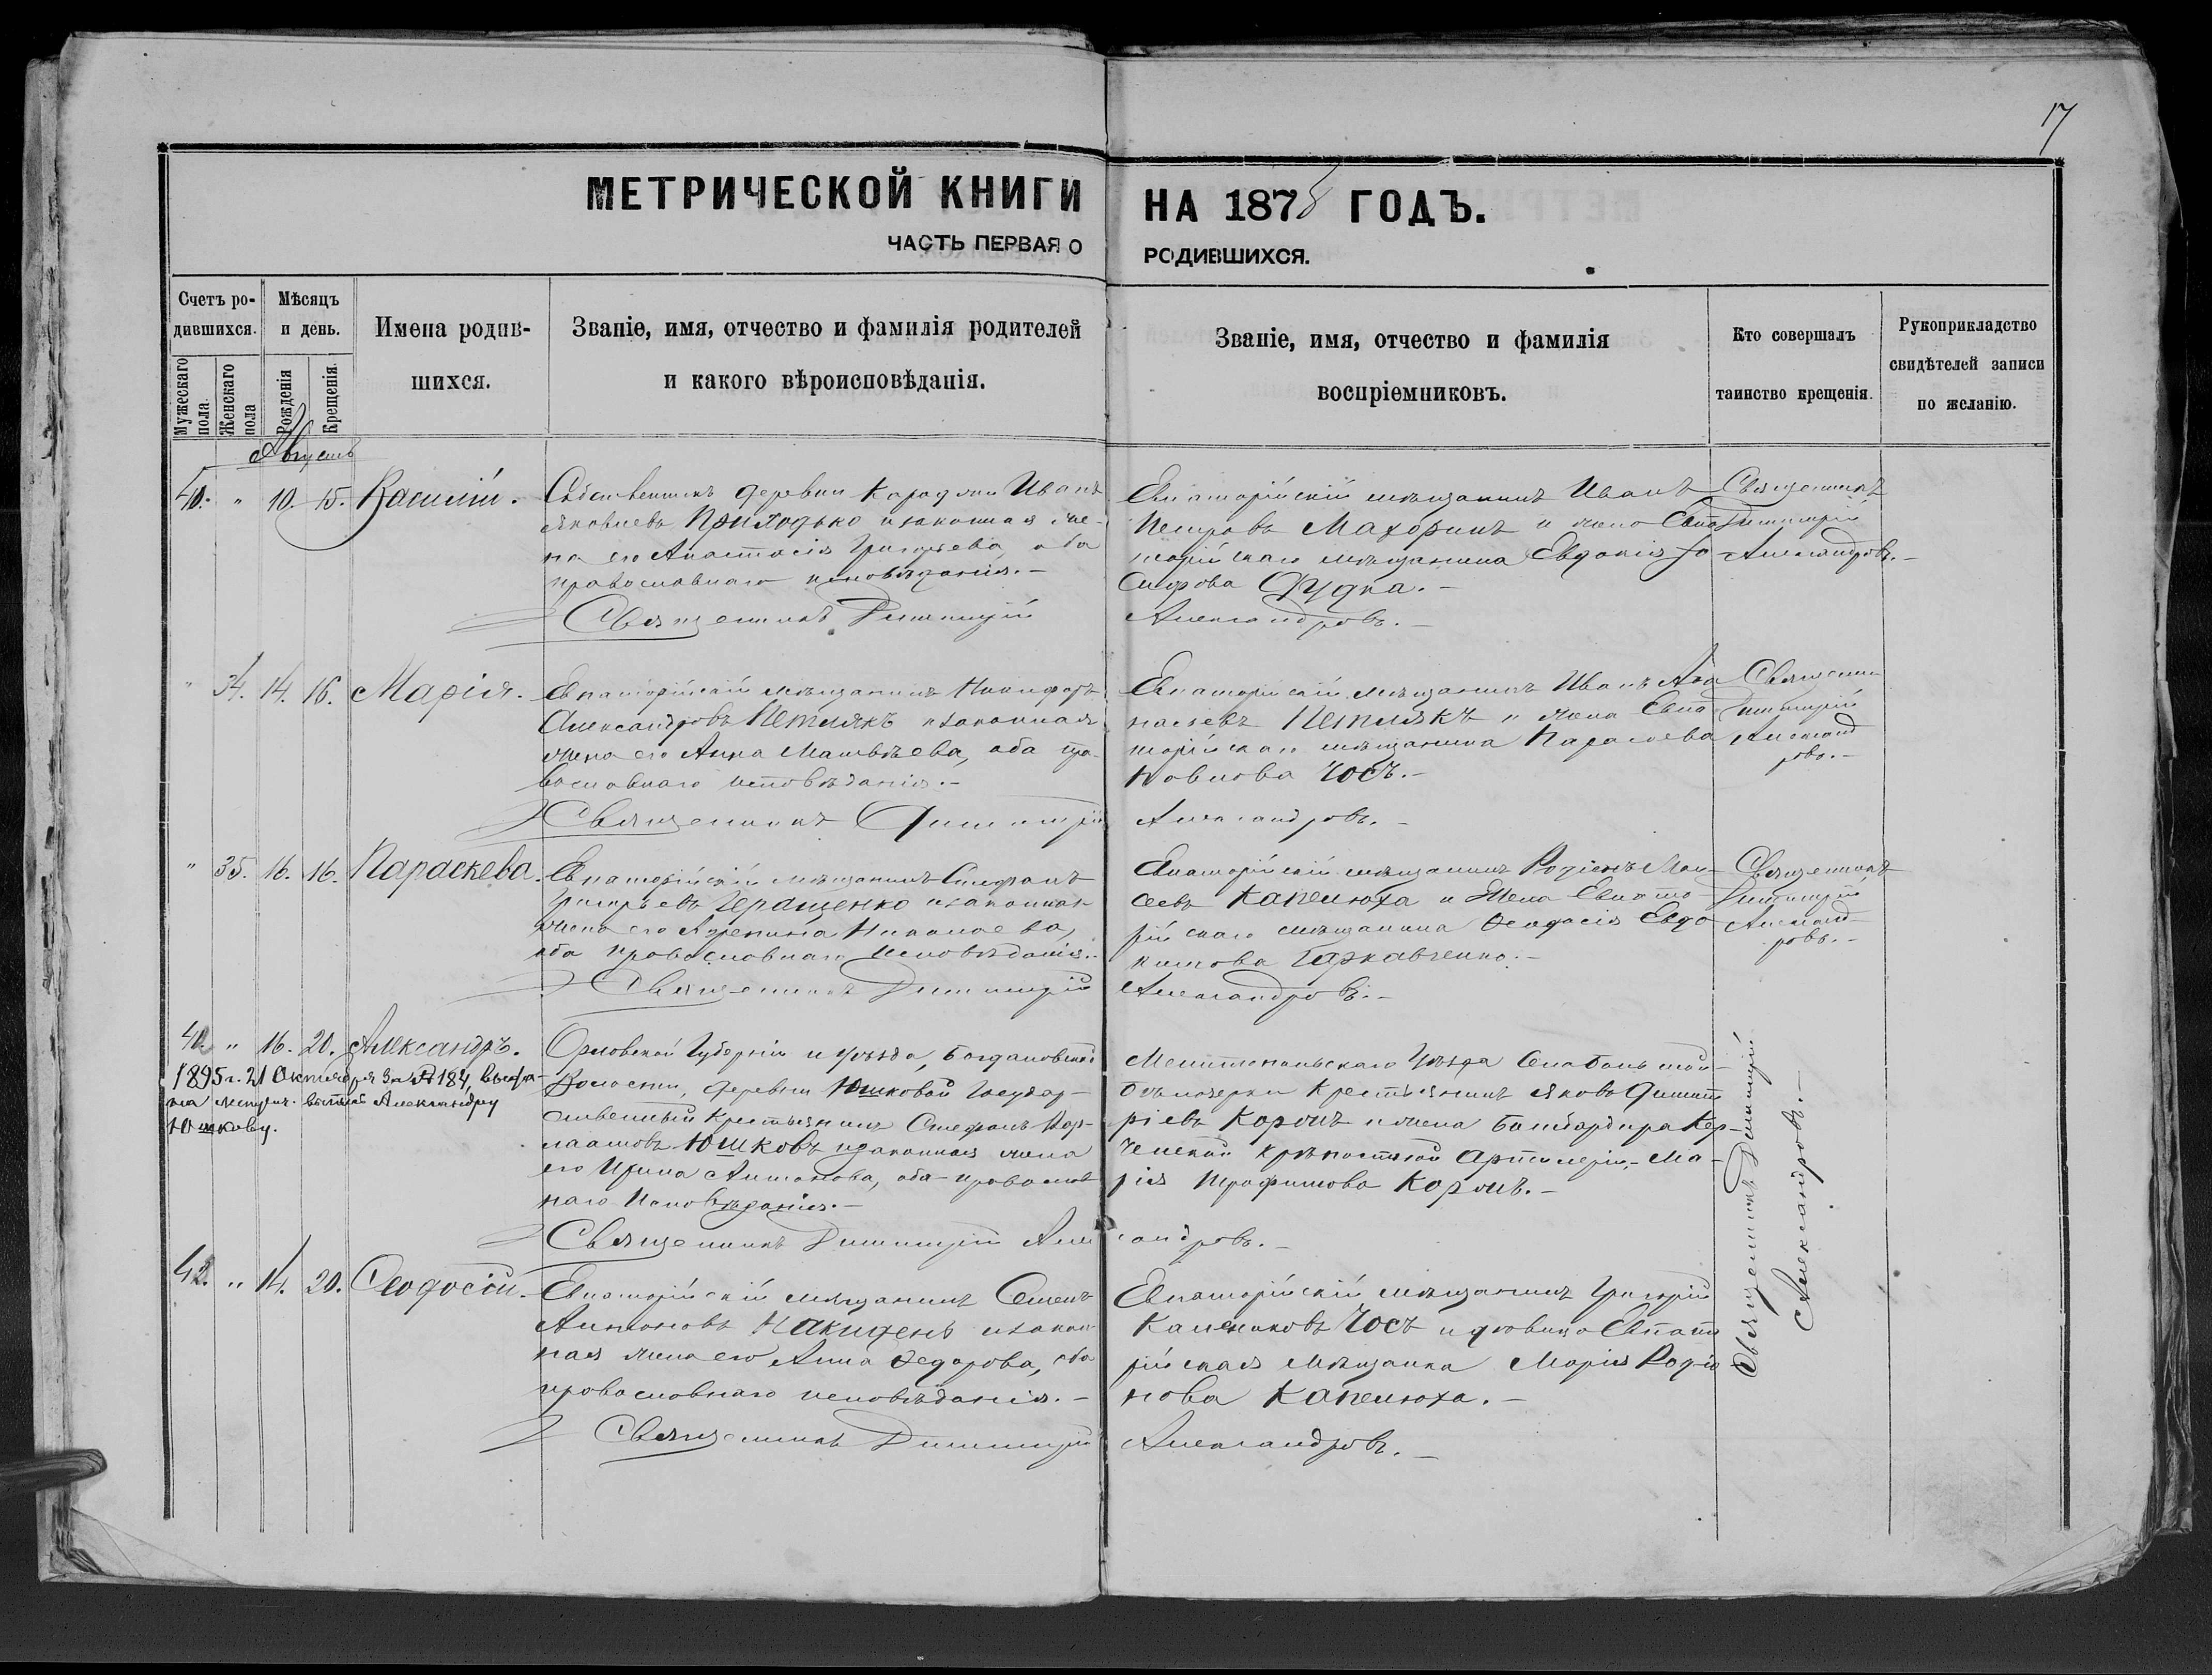 17
МЕТРИЧЕСКОЙ КНИГИ НА 1878 ГОДЪ.
ЧАСТЬ ПЕРВАЯ О РОДИВШИХСЯ.
Счетъ ро-
дившихся.
Мужескаго пола.
Женскаго пола
Мѣсяцъ
и день.
Рожденія
Крещенія.
Имена родив-
шихся.
Званіе, имя, отчество и фамилія родителей
и какого вѣроисповѣданія.
Званіе, имя, отчество и фамилія
воспріемниковъ.
Кто совершалъ
таинство крещенія.
Рукоприкладство
свидѣтелей записи
по желанію.
Августъ
40. " 10. 15. Василій.
Собственникъ деревни Иванъ
Яковлевъ Приходько и законная же-
на его Анастасія Григорьева, оба
православнаго исповѣданія.-
Священникъ Димитрій
Евпаторійскій мѣщанинъ Иванъ
Петровъ Махоринъ и жена Евпа
торійскаго мѣщанина Евдокія Іо
сифова Дудка.-
Александровъ.-
Священникъ
Димитрій
Александровъ.-
" 34. 14. 16. Марія.
Евпаторійскій мѣщанинъ Никифоръ
Александровъ Петлякъ и законная
жена его Анна Матвѣева, оба пра-
вославнаго исповѣданія.-
Священникъ Димитрій
Евпаторійскій мѣщанинъ Иванъ Афа
насьевъ Петлякъ и жена Евпа
торійскаго мѣщанина Параскева
Павлова Чосъ.-
Александровъ.-
Димитрій
Александ
ровъ.-
" 35. 16. 16. Параскева.
Евпаторійскій мѣщанинъ Стефанъ
Григорьевъ Геращенко и законная
жена его Агрепина Николаева,
оба православнаго исповѣданія.-
Священникъ Димитрій
Евпаторійскій мѣщанинъ Родіонъ Мои-
сеевъ Капелюха и жена Евпато
рійскаго мѣщанина Ѳеодосія Евдо
кимова Гаркавченко.-
Александровъ.-
Священникъ
Димитрій
Александ-
ровъ.-
41. " 16. 20. Александръ.
1895 г. 21 Октября за № 184, выда-
на метрич. выпись Александру
Юшкову.
Орловской Губерніи и уѣзда, Богдановской
Волости, деревни Юшковой Государ-
ственный Крестьянинъ Стефанъ
Юшковъ и законная жена
его Ирина Антонова, оба православ
наго исповѣданія.-
Священникъ Димитрій Александровъ.-
Мелитопольскаго Уѣзда Села Большой
Бѣлозерки Крестьянинъ Яковъ Димит
ріевъ Корожъ и жена Бомбардира Кер-
ченской крѣпостной Артилеріи Ма-
рія Трофимова Корожъ.-
Священникъ Димитрій
Александровъ.-
42. " 14. 20. Ѳеодосій.
Евпаторійскій мѣщанинъ Семенъ
Антоновъ и закон
ная жена его Анна Ѳедорова, оба
православнаго исповѣданія.-
Священникъ Димитрій
Евпаторійскій мѣщанинъ Григорій
Калениковъ Чосъ и дѣвица Евпато
рійская мѣщанка Марія Родіо
нова Капелюха.-
Александровъ.-